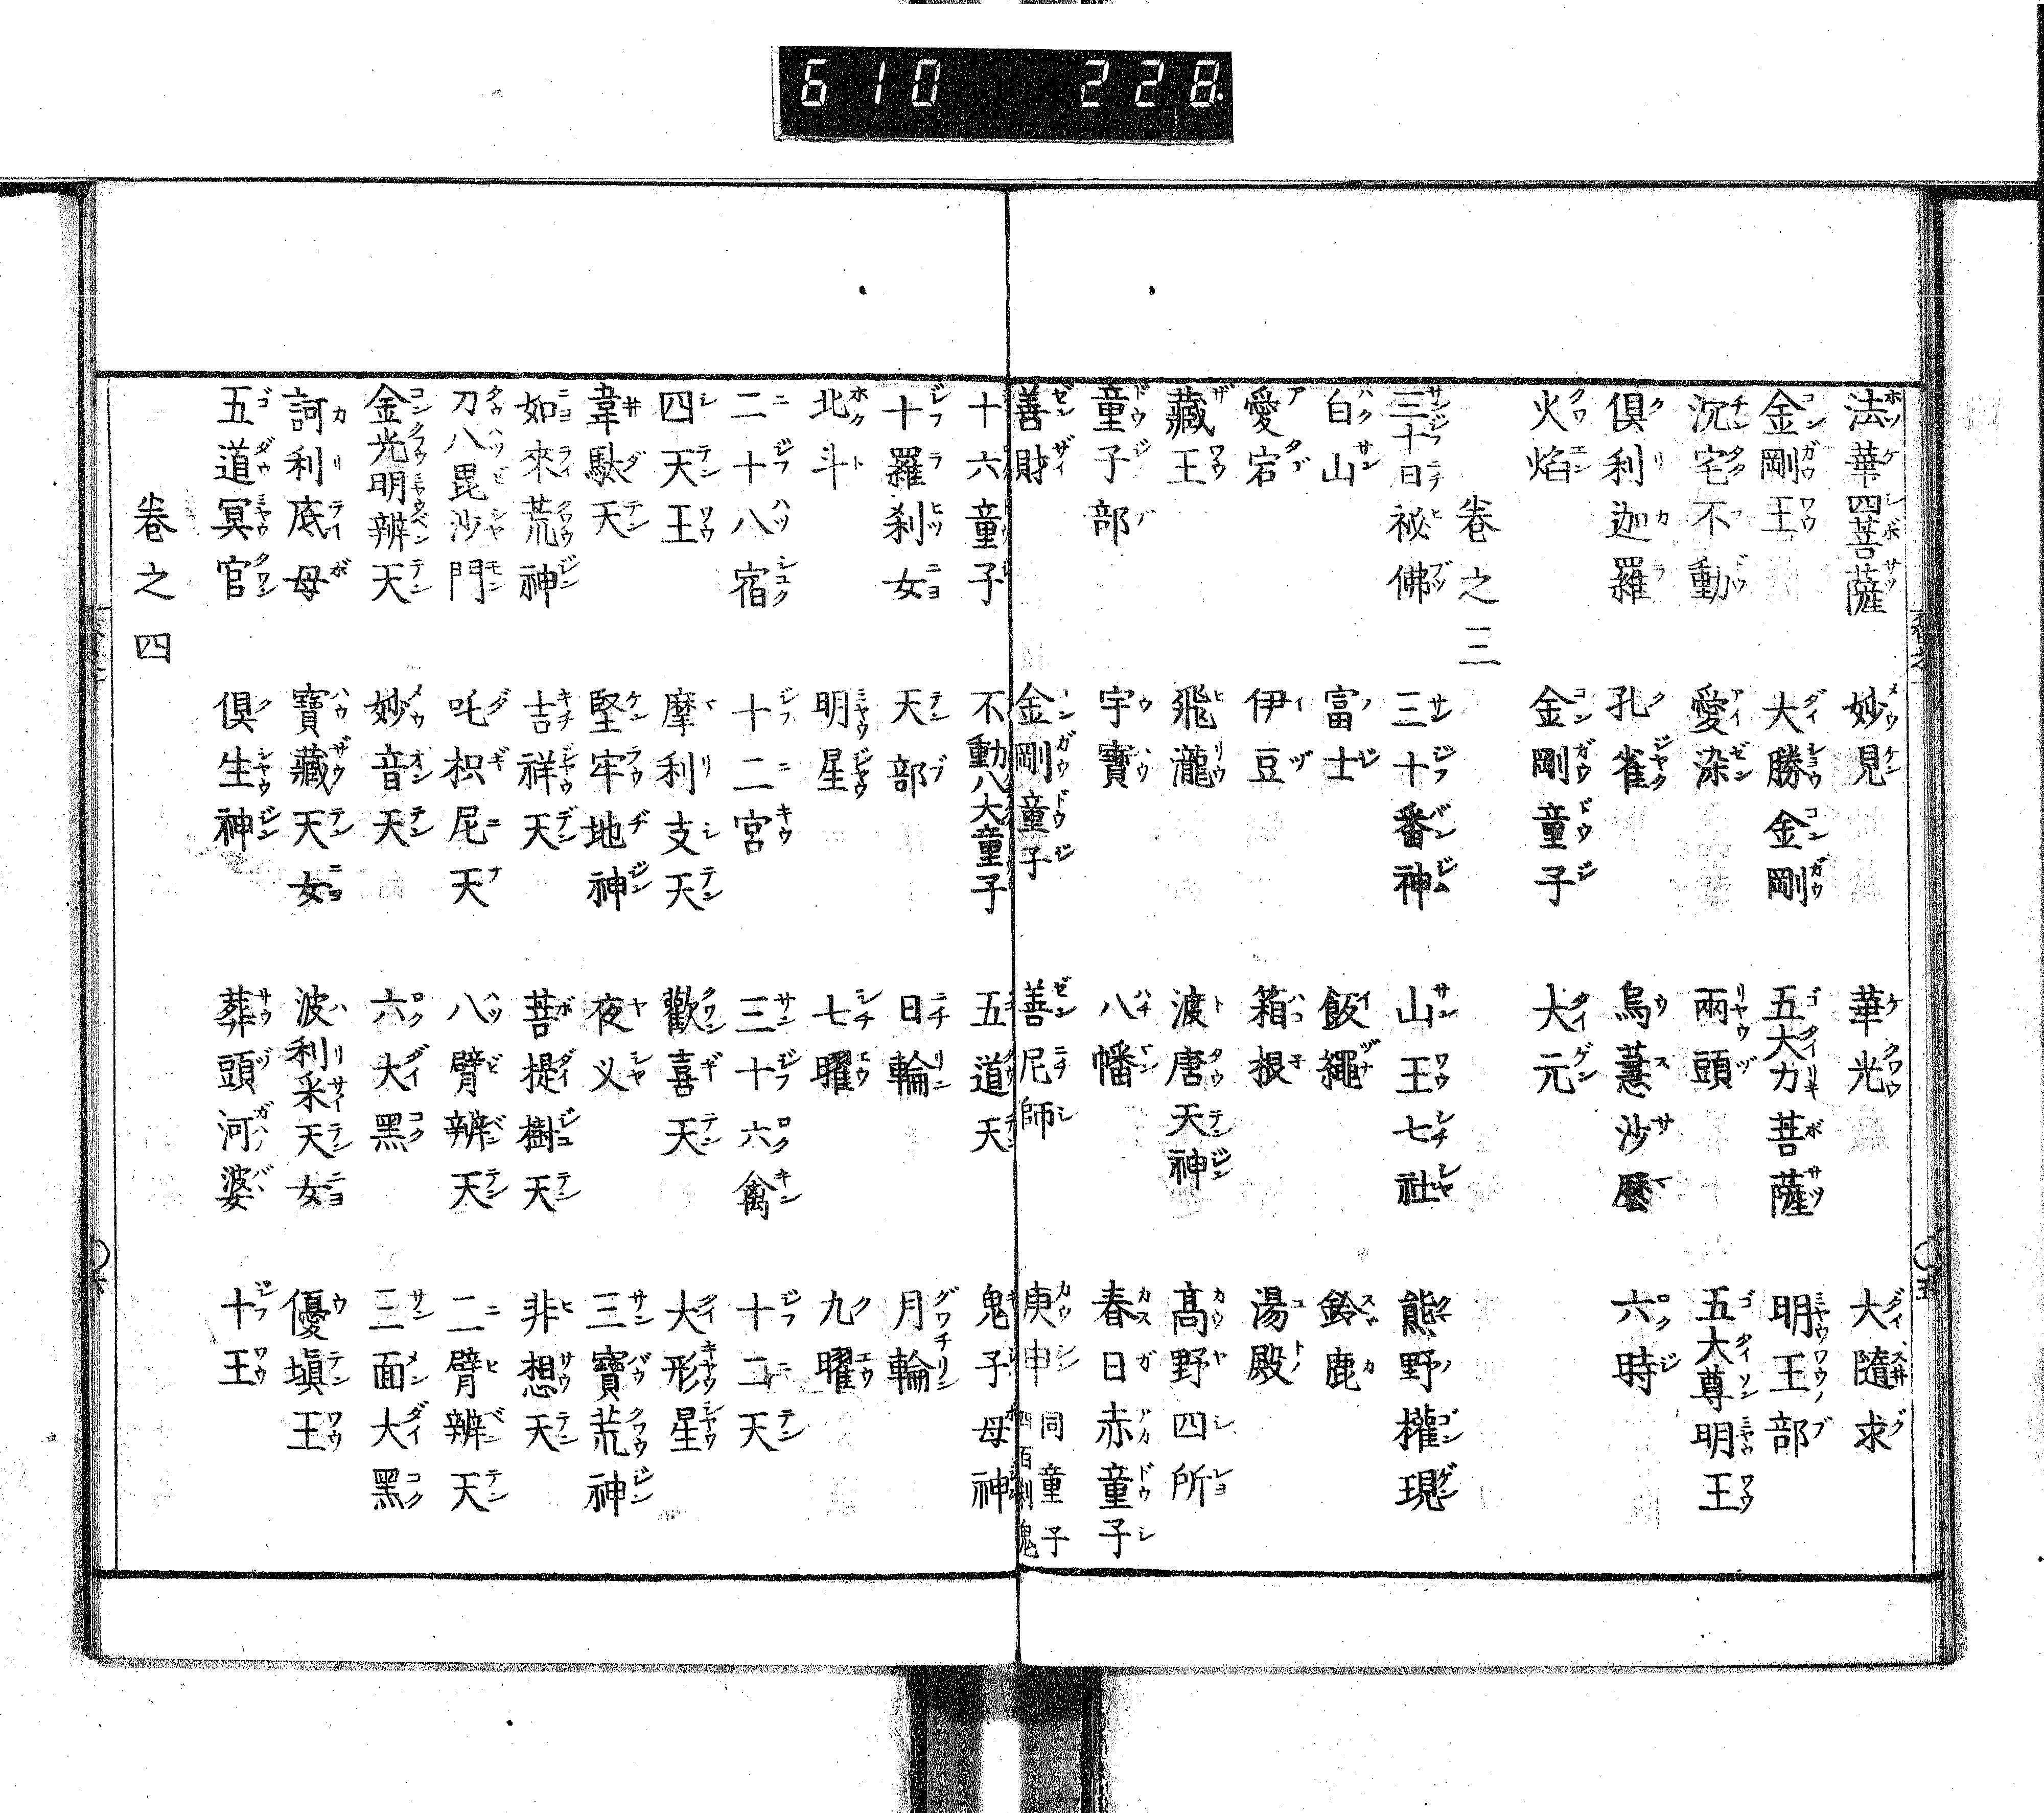 610 228
法華四菩薩 妙見 華光 大隨求
金剛王 大勝金剛 五大力菩薩 明王部
沉宅不動 愛染 兩頭 五大尊明王
倶利迦羅 孔雀 烏蒭沙麼 六時
火焰 金剛童子 大元
卷之三
三十日祕佛 三十番神 山王七社 熊野權現
白山 富士 飯繩 鈴鹿
愛宕 伊豆 箱根 湯殿
藏王 飛瀧 渡唐天神 髙野四所
童子部 宇寶 八幡 春日赤童子
善財 金剛童子 善尼師 庚申 同童子
十六童子 不動八大童子 五道天 鬼子母神
十羅刹女 天部 日輪 月輪
北斗 明星 七曜 九曜
二十八宿 十二宮 三十六禽 十二天
四天王 摩利支天 歡喜天 大形星
韋馱天 堅牢地神 夜义 三寶荒神
如來荒神 吉祥天 菩提樹天 非想天
刀八毘沙門 吒枳尼天 八臂辨天 二臂辨天
金光明辨天 妙音天 六大黑 三面大黑
訶利底母 寶藏天女 波利采天女 優塡王
五道冥官 倶生神 葬頭河婆 十王
卷之四